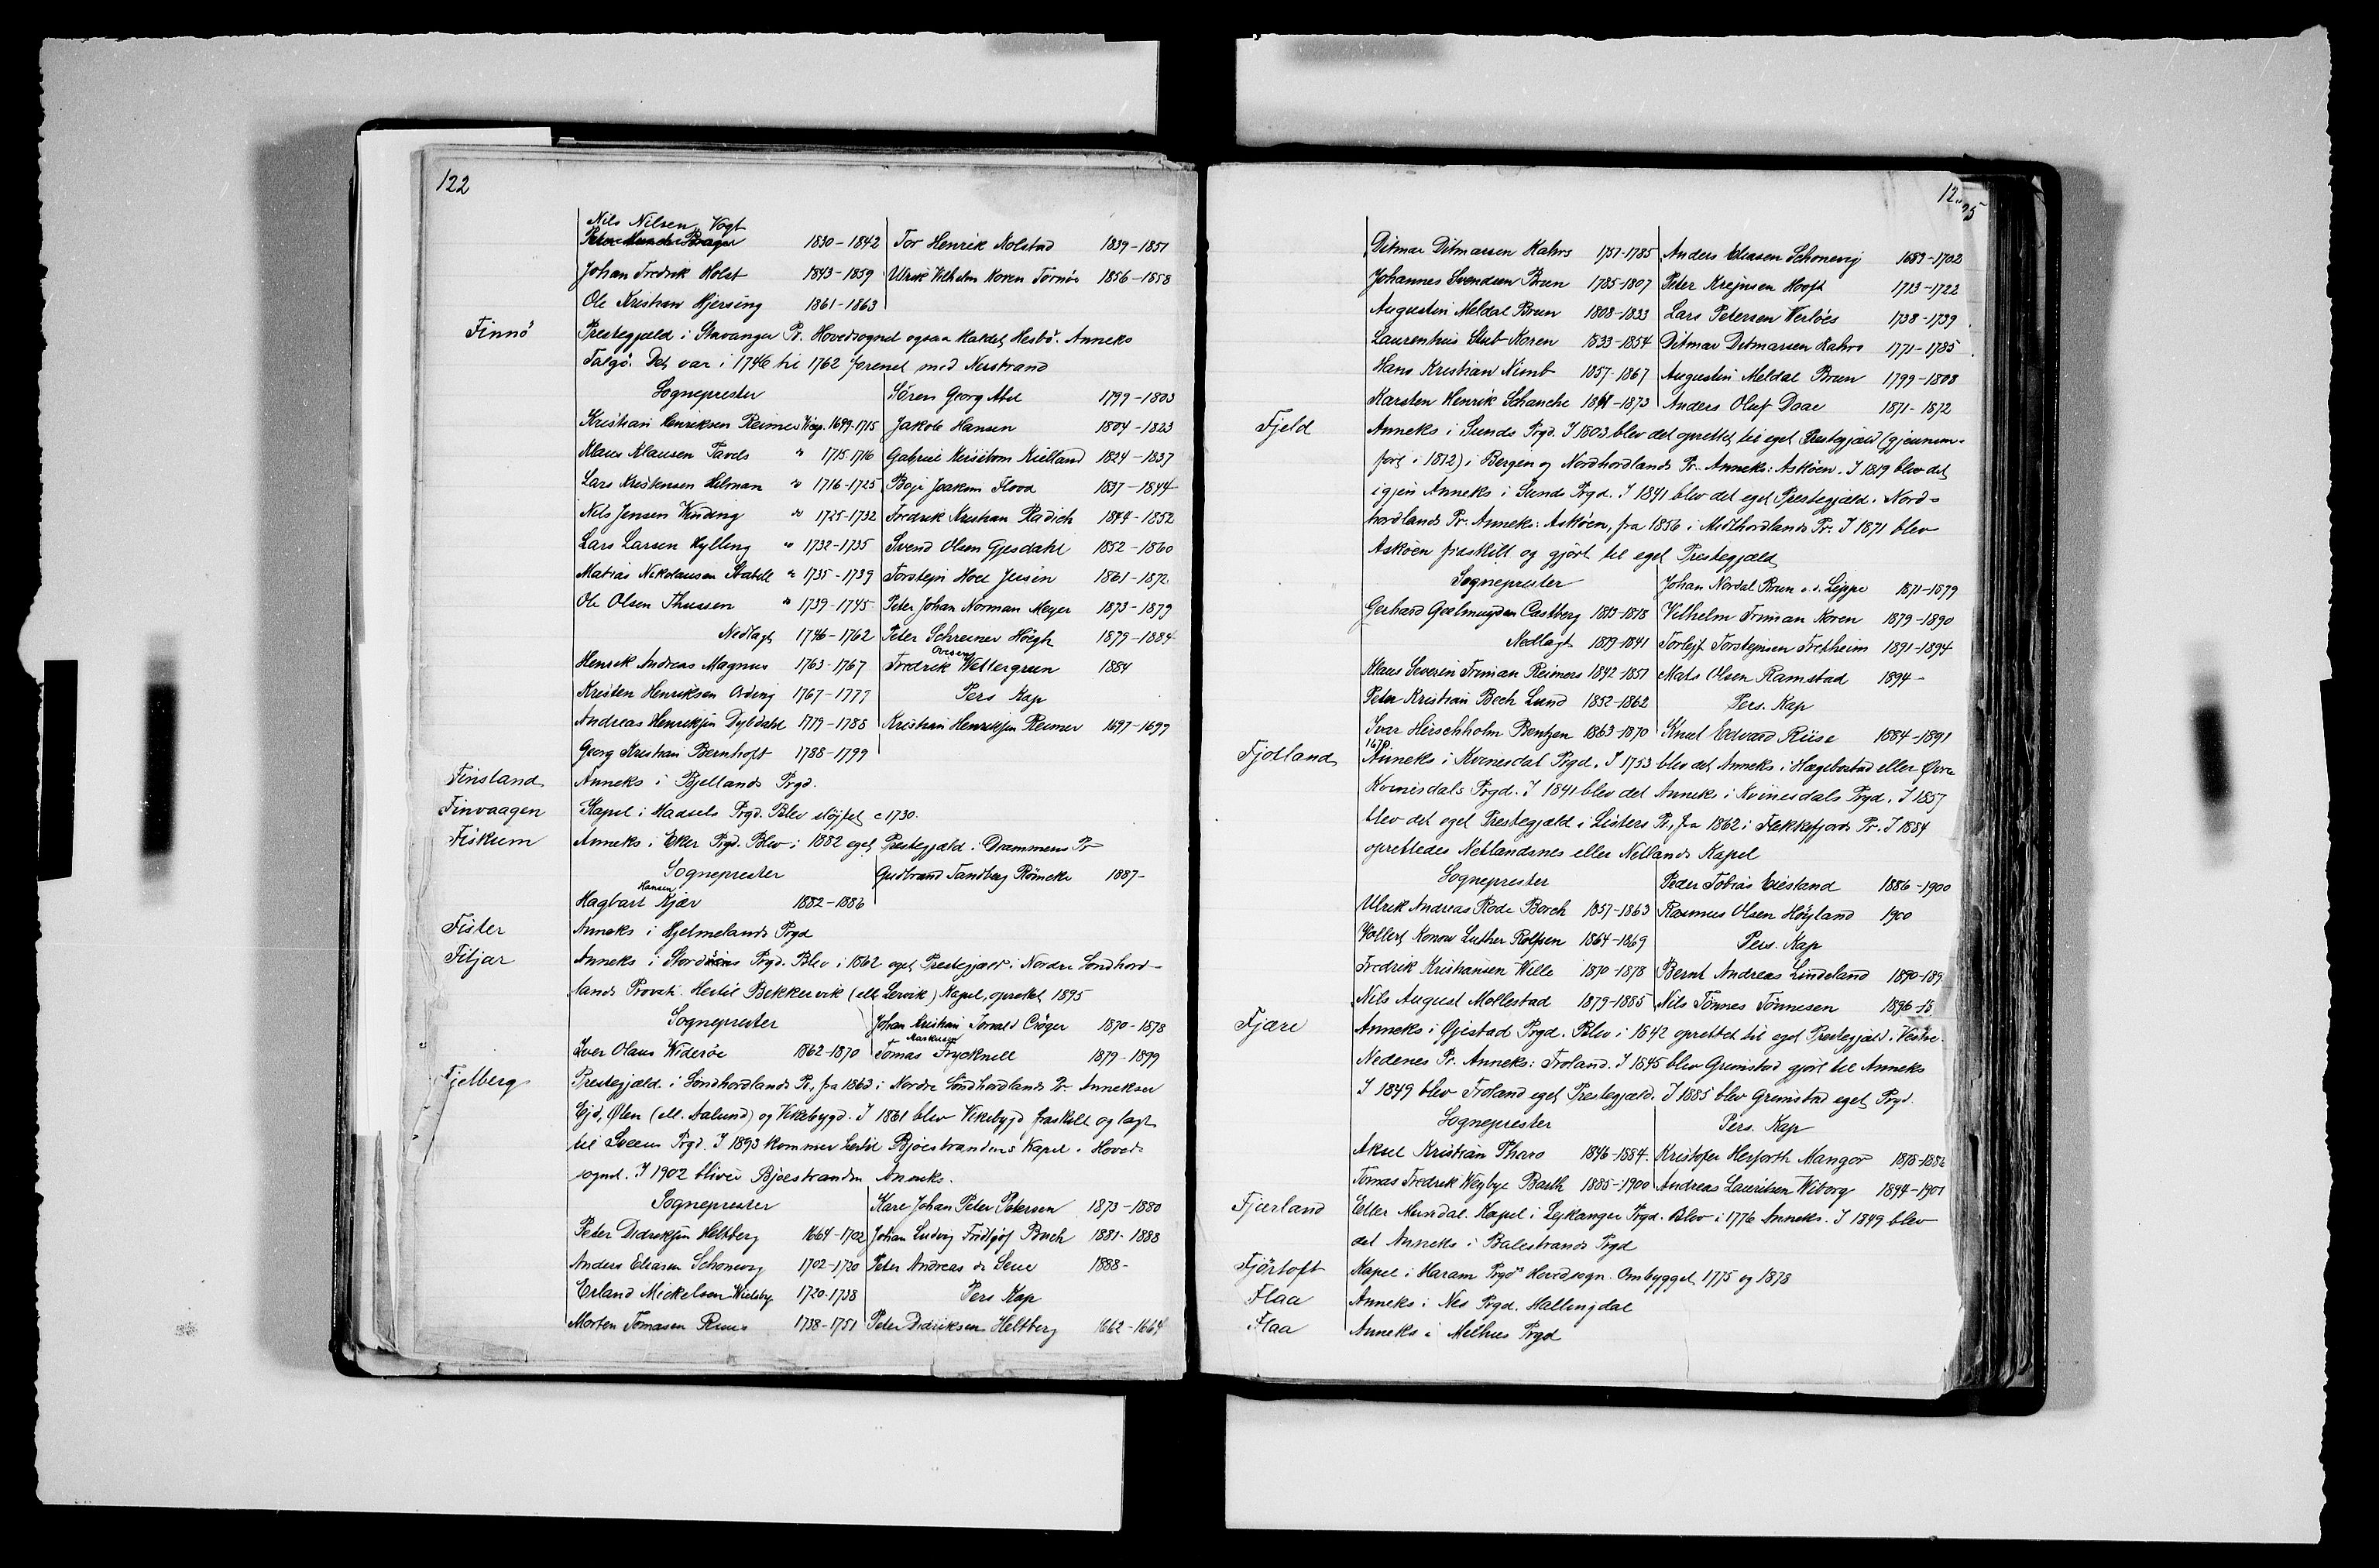 122
Nils Nilsen Vogt
1830-1842 Tor Henrik Kolstad 1839-1851
Johan Fredrik Holst 1843-1859 Ulrik Vilhelm Koren Tornöe 1856-1858
Ole Kristian Hjersing 1861-1863
Finnö Prestegjæld i Stavanger Pr. Hovedsognet ogsaa kaldet Hesbö. Anneks
Talgö. Det var i 1746 til 1762 forenet med Nerstrand
Sogneprester Sören Georg Abel 1799-1803
Kristian Henriksen Reimer 1699-1715 Jakob Hansen 1804-1823
Klaus Klausen Tavels " 1715-1716 Gabriel Kirsebom Kielland 1824-1837
Lars Kristensen Hilman " 1716-1725 Boje Joakim Flood 1837-1844
Nils Jensen Winding " 1725-1732 Fredrik Kristian Radich 1844-1852
Lars Larsen Hylling " 1732-1735 Svend Olsen Gjesdahl 1852-1860
Matias Nikolausen Stabell " 1735-1739 Torstejn Hoel Jersin 1861-1872
Ole Olsen Thussen " 1739-1745 Peter Johan Norman Meyer 1873-1879
Nedlagt 1746-1762 Peter Schreiner Höegh 1879-1884
Henrik Andreas Magnus 1763-1767 Fredrik Wettergreen 1884
Kristen Henriksen Arding 1767-1777 Pers Kap
Andreas Henriksen Dybdahl 1779-1788 Kristian Henriksen Reimer 1697-1699
Georg Kristian Bernhoft 1788-1799
Finsland Anneks i Bjellands Prgd.
Finvaagen Kapel i Hadsels Prgd. Blev slöjfet c 1730.
Fiskum Anneks i Eker Prgd. Blev i 1882 eget Prestegjæld i Drammens Pr
Sogneprester Gudbrand Tandberg Römcke 1887-
Hansen
Hagbart Kjær 1882-1886
Fister Anneks i Hjelmelands Prgd
Fitjar Anneks i Stordöens Prgd. Blev i 1862 eget Prestegjæld i Nordre Söndhord-
lands Provsti. Hertil Bekkervik (ell. Lervik) Kapel, oprettet 1895
Sogneprester Johan Kristian Torvald Cröger 1870-1878
Iver Olaus Wideröe 1862-1870 Tomas Trycknell 1879-1899
Fjelberg Prestegjæld i Söndhordlands Pr., fra 1863 i Nordre Söndhordlands Pr. Annekser
Ejd, Ølen (ell. Aalund) og Vikebygd. I 1861 blev Vikebygd fraskilt og lagt
til Sveens Prgd. I 1893 kommer hertil Bjoestrandens Kapel i Hoved-
sognet. I 1902 bliver Bjoestranden Anneks.
Sogneprester Kare Johan Peter Petersen 1873-1880
Peter Didriksen Heltberg 1664-1702 Johan Ludvig Fridtjof Buch 1881-1888
Anders Eliasen Schonevig 1702-1720 Peter Andreas de Seue 1888-
Erland Mickelsen Wieleby 1720-1738 Pers Kap
Morten Tomasen Ruus 1738-1751 Peter Didriksen Heltberg 1662-1664
Ditmar Ditmarsen Kahrs 1751-1785 Anders Eliasen Schonevig 1683-1702
Johannes Svendsen Brun 1785-1807 Peter Krejnsen Hooft 1713-1722
Augustin Meldal Brun 1808-1833 Lars Petersen Verlöes 1738-1739
Laurentius Stub Koren 1833-1854 Ditmar Ditmarsen Kahrs 1771-1785
Hans Kristian Nimb 1857-1867 Augustin Meldal Brun 1799-1808
Karsten Henrik Schanche 1868-1873 Anders Oluf Daae 1871-1872
Fjeld Anneks i Sunds Prgd. I 1803 blev det oprettet til eget Prestegjæld (gjennem-
fört i 1812) i Bergen og Nordhordlands Pr. Anneks: Asköen. I 1819 blev det
igjen Anneks i Sunds Prgd. I 1841 blev det eget Prestegjæld. Nord-
hordlands Pr. Anneks: Asköen, fra 1856 i Midthordlands Pr. I 1871 blev
Asköen fraskilt og gjört til eget Prestegjæld
Sogneprester Johan Nordal Brun v. d. Lippe 1871-1879
Gerhard Geelmuyden Castberg 1813-1818 Vilhelm Friman Koren 1879-1890
Nedlagt 1819-1841 Torlejf Torstejnsen Fretheim 1891-1894
Klaus Severin Friman Reimers 1842-1851 Mats Olsen Ramstad 1894-
Peter Kristian Bech Lund 1852-1862 Pers. Kap
Ivar Hirschholm Bentzen 1863-1870 Knut Edvard Riise 1884-1891
1670
Fjotland Anneks i Kvinesdal Prgd. I 1753 blev det Anneks i Hægebostad eller Øvre
Kvinisdals Prgd. I 1841 blev det Anneks i Kvinesdals Prgd. I 1857
blev det eget Prestegjæld i Listers Pr., fra 1862 i Flekkefjords Pr. I 1884
oprettedes Netlandsnes eller Netlands Kapel
Sogneprester Peder Tobias Eiesland 1886-1900
Ulrik Andreas Rode Borch 1857-1863 Rasmus Olsen Höyland 1900
Vollert Konow Luther Rolfsen 1864-1869 Pers. Kap
Fredrik Kristiansen Wille 1870-1878 Bernt Andreas Lindeland 1890-189
Nils August Mollestad 1879-1885 Nils Tönnes Tönnesen 1896-
Fjære Anneks i Øjestad Prgd. Blev i 1842 oprettet til eget Prestegjæld. Vestre
Nedenes Pr. Anneks: Froland. I 1845 blev Grimstad gjört til Anneks
I 1849 blev Froland eget Prestegjæld. I 1885 blev Grimstad eget Prgd.
Sogneprester Pers. Kap
Aksel Kristian Pharo 1846-1884. Kristofer Herforth Mangor 1878-188
Tomas Fredrik Weybye Barth 1885-1900 Andreas Lauritsen Wiborg 1894-1901
Fjærland Eller Mundal. Kapel i Lejkanger Prgd. Blev i 1776 Anneks. I 1849 blev
det Anneks i Balestrands Prgd
Fjörtoft Kapel i Haram Prgds Hovedsogn. Ombygget 1775 og 1878
Flaa Anneks i Nes Prgd. Hallingdal
Flaa Anneks i Melhus Prgd